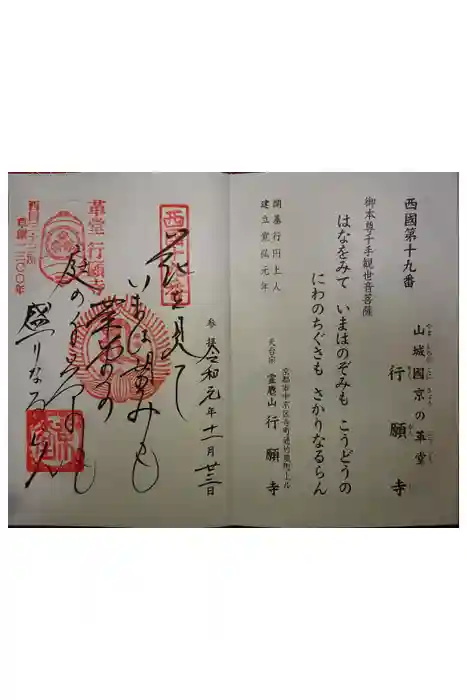 西國第十九番
山城國京の革堂
やましろのくにきょうのこうどう
行願寺
御本尊千手観世音菩薩
はなをみて いまはのぞみも こうどうの
にわのちぐさも さかりなるらん
開基行円上人
建立寛弘元年
京都市中京区寺町通竹屋町上ル
天台宗 霊麀山 行願寺
参拝 令和元年十一月廿三日
花を見て
いまは望みも
革堂の
庭の千草も
盛りなるらん
革堂 行願寺
西国三十三所
草創一三〇〇年